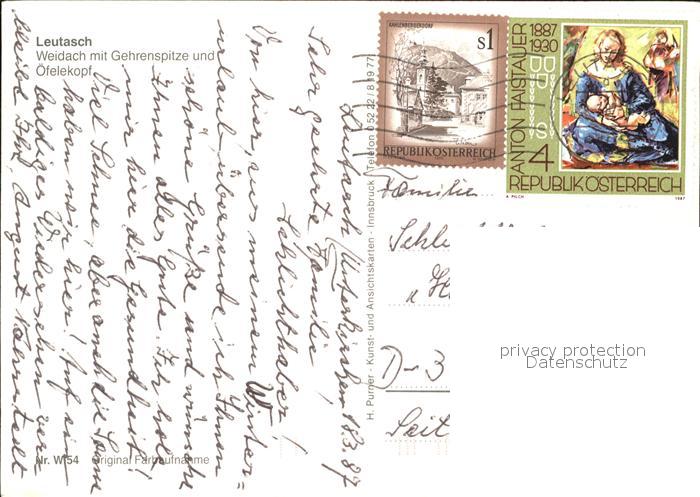 Leutasch
Weidach mit Gehrenspitze und
Öfelekopf
Nr. W 54 Original Farbaufnahme
H. Purner - Kunst- und Ansichtskarten - Innsbruck / Telefon 0 52 22 / 8 19 77
KAHLENBERGERDORF
s1
REPUBLIK ÖSTERREICH
ANTON FAISTAUER 1887
1930
S
4
REPUBLIK ÖSTERREICH
A. PILCH 1987
Leutasch 18.3.87
Sehr geehrte Familie
Schlichthaber!
Von hier, aus meinem Winter=
urlaub, übersende ich Ihnen
schöne Grüße und wünsche
Ihnen alles Gute. Ich hole
mir hier die Gesundheit!
Viel Schnee, aber auch die Sonne
haben wir hier! Auf ein
baldiges Wiedersehen
bleibe Ihr August
Familie
Schli
D-3
Seit
privacy protection
Datenschutz